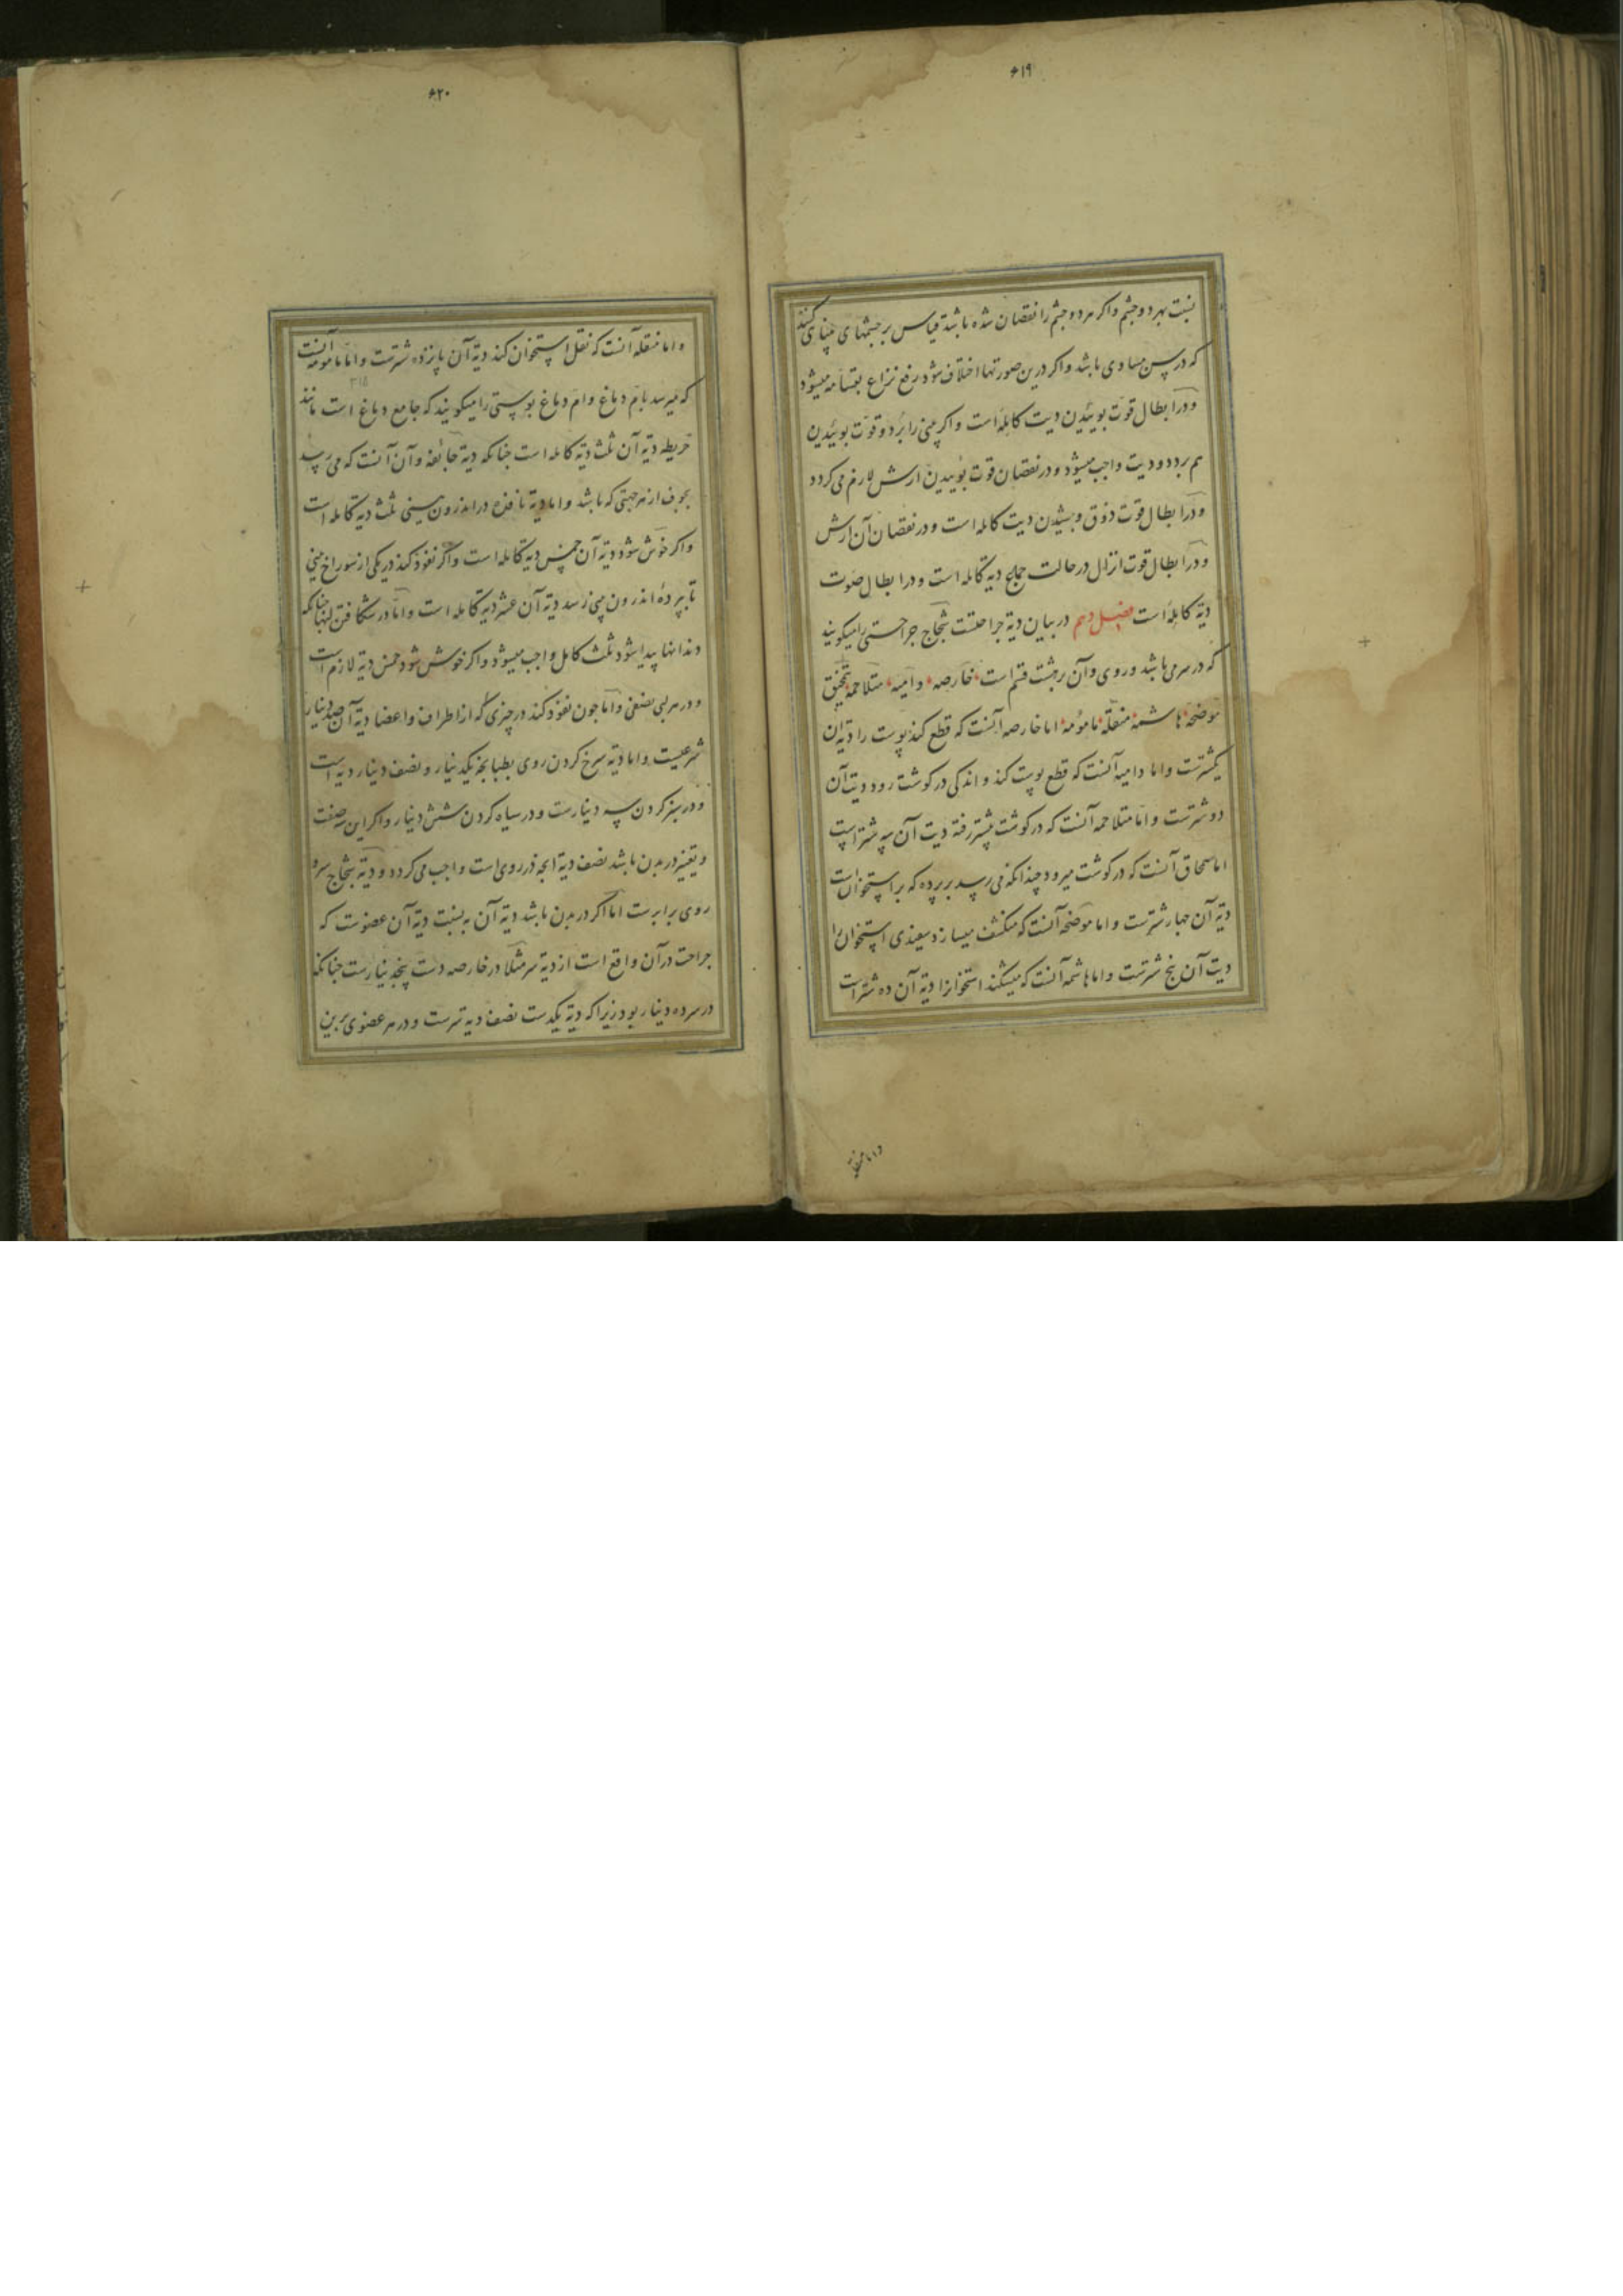 ۶۱۹
نسبت بهر دو چشم واکر هر دو چشم را نقصان شده باشد قیاس بر چشمهای بینای کنند
که در سن مساوی باشد واکر درین صورتها اختلاف شود رفع نزاع بقسامه میشود
ودر ابطال قوت بوییدن دیت کامله است واکر بینی را برد وقوت بوییدن
هم برد دو دیت واجب میشود ودر نقصان قوت بوییدن ارش لازم می کردد
ودر ابطال قوت ذوق وچشیدن دیت کامله است ودر نقصان آن ارش
ودر ابطال قوت انزال در حالت جماع دیه کامله است ودر ابطال صوت
دیه کامله است فصل دهم در بیان دیه جراحتست شجاج جراحتی را میکویند
که در سر می باشد وروی وآن بر هشت قسم است خارصه دامیه متلاحمه
موضحه هاشمه منقله مامومه اما خارصه آنست که قطع کند پوست را دیه آن
یکشترست واما دامیه آنست که قطع پوست کند واندکی در کوشت رود دیت آن
دو شترست واما متلاحمه آنست که در کوشت بیشتر رفته دیت آن سه شتر است
اما سمحاق آنست که در کوشت میرود چندانکه می رسد بر پرده که بر استخوان است
دیه آن چهار شترست واما موضحه آنست که منکشف میسازد سفیدی استخوان را
دیت آن پنج شترست واما هاشمه آنست که میشکند استخوانرا دیه آن ده شتر است
واما منقله
۶۲۰
واما منقله آنست که نقل استخوان کند دیه آن پانزده شترست واما مامومه آنست
۳۱۵
که میرسد بام دماغ وام دماغ پوستی را میکویند که جامع دماغ است مانند
خریطه دیه آن ثلث دیه کامله است چنانکه دیه جایفه وآن آنست که می رسد
بجوف از هر جهتی که باشد واما دیه نافذه در اندرون بینی ثلث دیه کامله است
واکر خوش شود دیه آن خمس دیه کامله است واکر نفوذ کند در یکی از سوراخ بینی
تا پرده اندرون بینی رسد دیه آن عشر دیه کامله است واما در شکافتن لبها چنانکه
دندانها پیدا شود ثلث کامل واجب میشود واکر خوش شود خمس دیه لازم است
ودر هر لبی نصفی واما چون نفوذ کند در چیزی که از اطراف واعضا دیه آن صد دینار
شرعیست واما دیه سرخ کردن روی بطپانچه یکدینار ونصف دینار دیه است
ودر سبز کردن سه دینارست ودر سیاه کردن شش دینار واکر این سه صفت
وتغییر در بدن باشد نصف دیه آنچه در روی است واجب می کردد ودیه شجاج سر و
روی برابرست اما اکر در بدن باشد دیه آن به نسبت دیه آن عضوست که
جراحت در آن واقع است از دیه سر مثلا در خارصه دست پنجدینارست چنانکه
در سر ده دینار بود زیرا که دیه یکدست نصف دیه سرست ودر هر عضوی برین